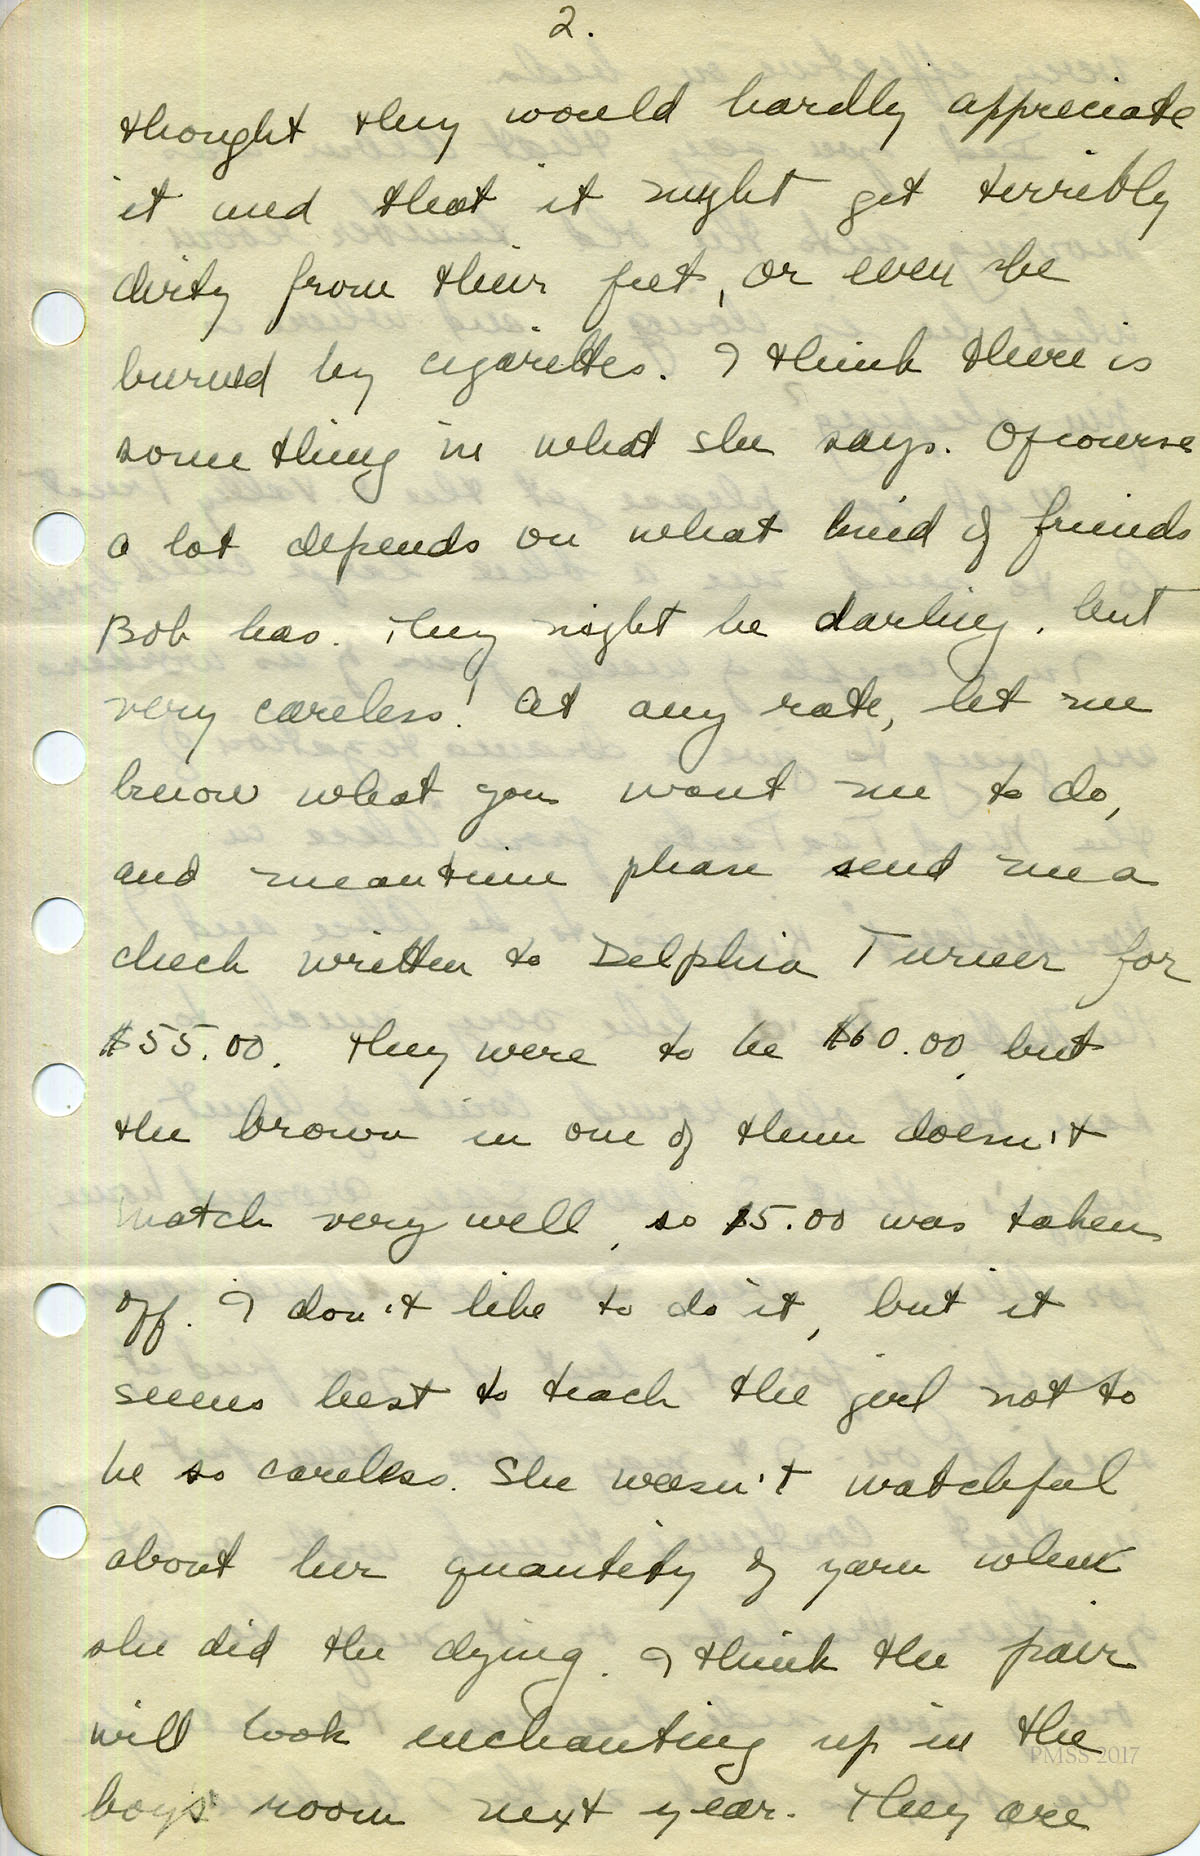 2.
thought they would hardly appreciate
it and that it might get terribly
dirty from their feet, or even be
burned by cigarettes. I think there is
something in what she says. Ofcourse
a lot depends on what kind of friends
Bob has. They might be darling, but
very careless! At any rate, let me
know what you want me to do,
and meantime please send me a
check written to Delphia Turner for
$55.00. They were to be $60.00, but
the brown in one of them doesn't
match very well, so $5.00 was taken
off. I don't like to do it, but it
seems best to teach the girl not to
be so careless. She wasn't watchful
about her quantity of yarn when
she did the dying. I think the pair
will look enchanting up in the
boys' room next year. They are
PMSS 2017